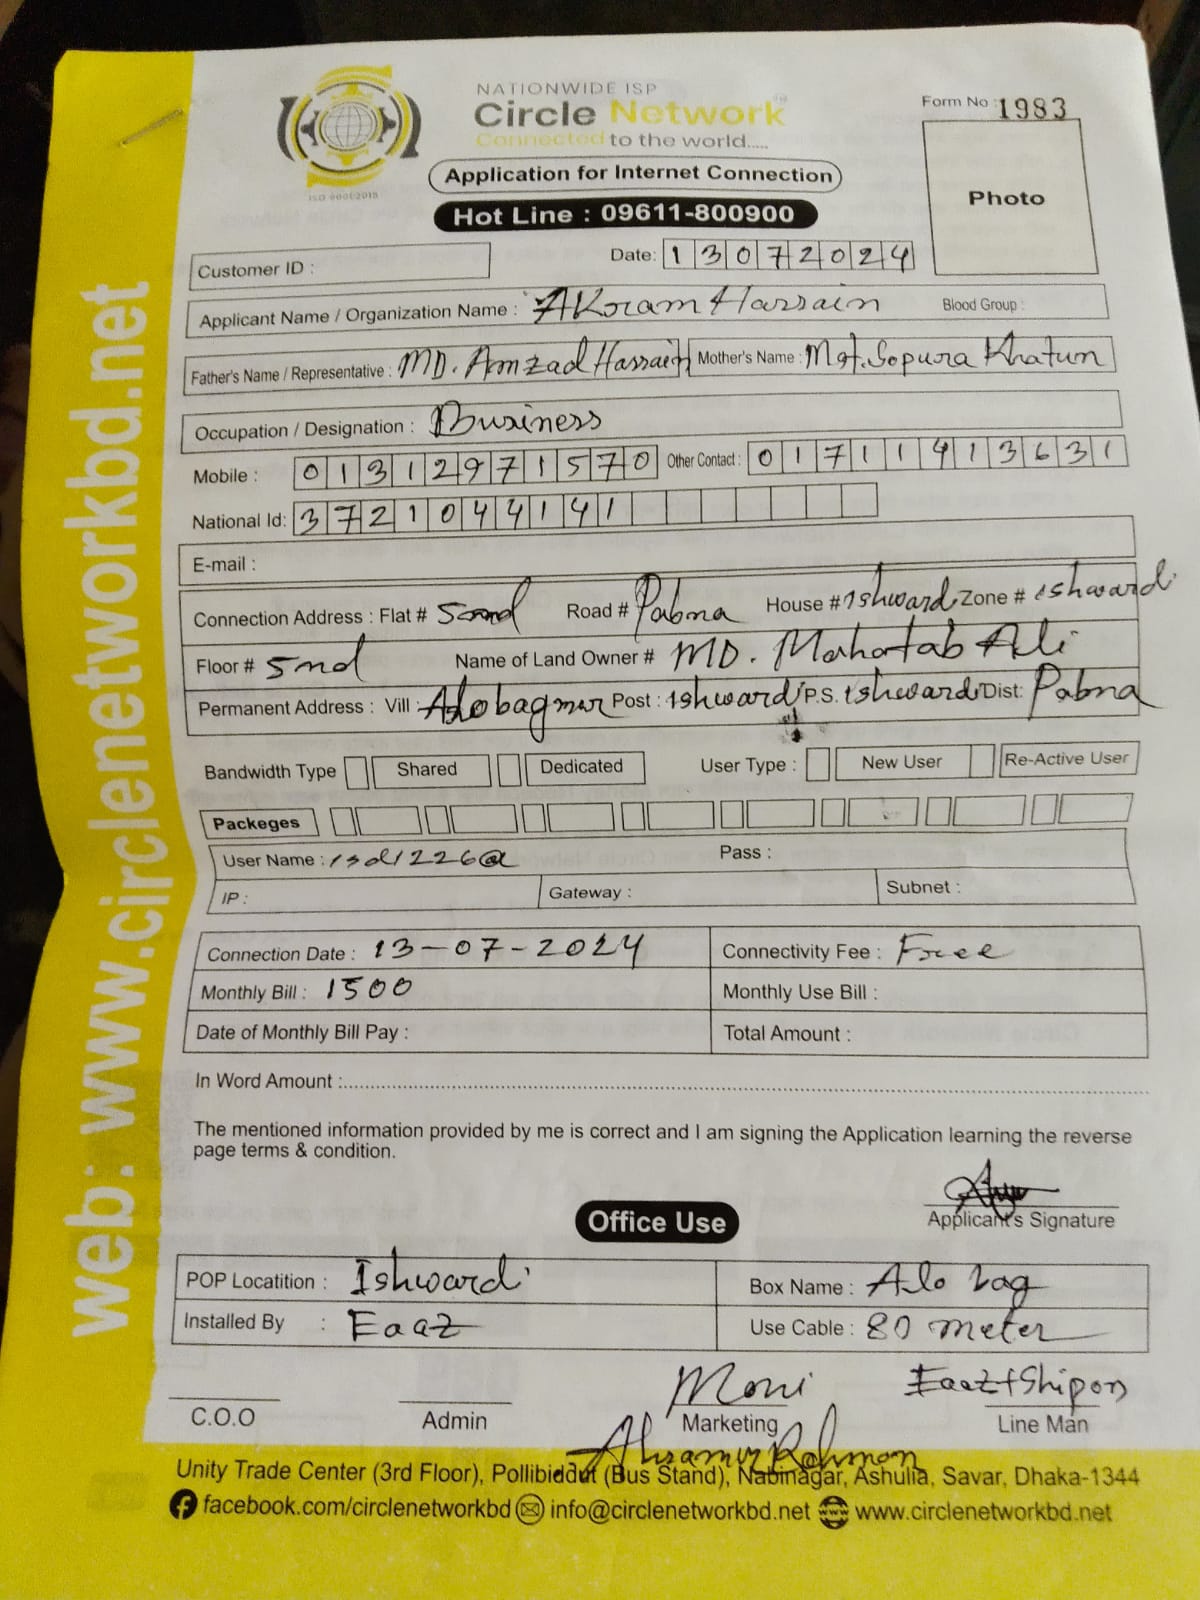 NATIONWIDE ISP
Circle Network
Connected to the world.....
Form No : 1983
Application for Internet Connection
Photo
Hot Line : 09611-800900
Customer ID :
Date: 13072024
Applicant Name / Organization Name : AKram Hassain Blood Group :
Father's Name / Representative : MD. Amzad Hassain Mother's Name : Mst. Sopura Khatun
Occupation / Designation : Business
Mobile : 01312971570 Other Contact : 01711413631
National Id: 3721044141
E-mail :
Connection Address : Flat # Road # Pabna House # Ishwardi Zone # ishwardi
Floor # 5nd Name of Land Owner # MD. Mahatab Ali
Permanent Address : Vill : Post : ishwardi P.S. ishwardi Dist: Pabna
Bandwidth Type Shared Dedicated User Type : New User Re-Active User
Packeges
User Name : isd1226@ Pass :
IP : Gateway : Subnet :
Connection Date : 13-07-2024 Connectivity Fee : Free
Monthly Bill : 1500 Monthly Use Bill :
Date of Monthly Bill Pay : Total Amount :
In Word Amount :
The mentioned information provided by me is correct and I am signing the Application learning the reverse
page terms & condition.
Applicant's Signature
Office Use
POP Locatition : Ishwardi Box Name : Alo bag
Installed By : Eaaz Use Cable : 80 meter
Moni Eaaz+Shipon
C.O.O Admin Marketing Line Man
Rahman
Unity Trade Center (3rd Floor), Pollibiddut (Bus Stand), Nabinagar, Ashulia, Savar, Dhaka-1344
facebook.com/circlenetworkbd info@circlenetworkbd.net www www.circlenetworkbd.net
web: www.circlenetworkbd.net
ISO 9001:2015